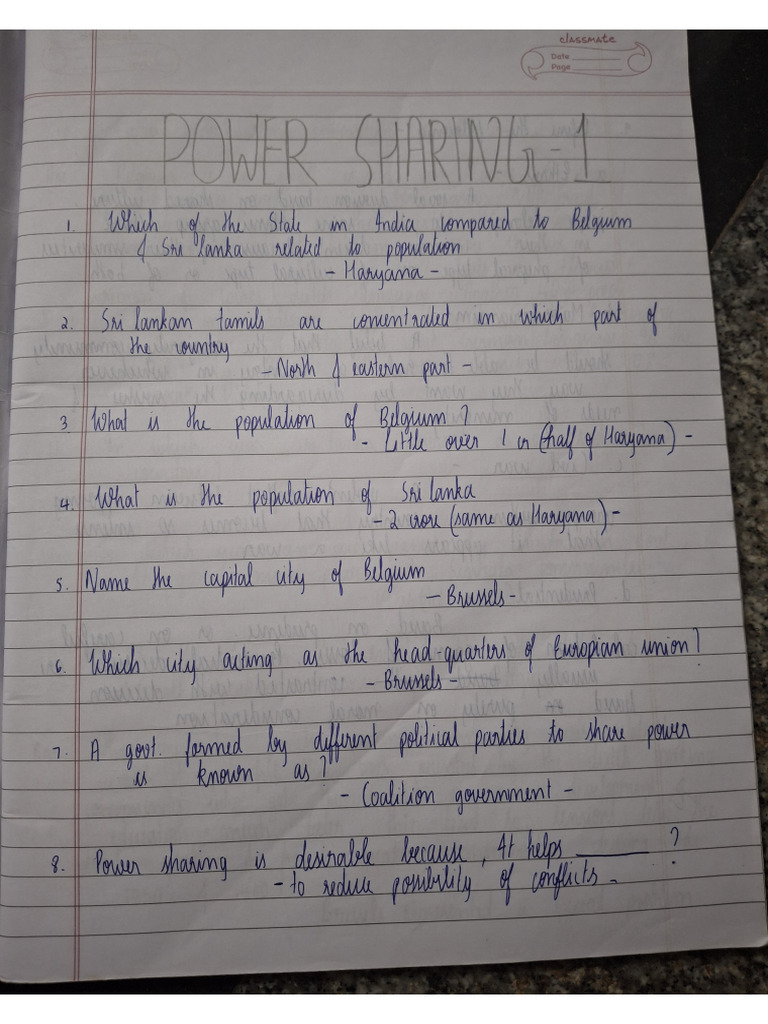 classmate
Date
Page
POWER SHARING-1
1. Which of the State in India compared to Belgium
& Sri lanka related to population
- Haryana -
2. Sri lankan tamils are concentrated in which part of
the country
- North & eastern part -
3. What is the population of Belgium?
- Little over 1 cr (half of Haryana) -
4. What is the population of Sri lanka
- 2 crore (same as Haryana) -
5. Name the capital city of Belgium
- Brussels -
6. Which city acting as the head-quarters of Europian union?
- Brussels -
7. A govt. formed by different political parties to share power
is known as?
- Coalition government -
8. Power sharing is desirable because, It helps ______ ?
- to reduce possibility of conflicts -